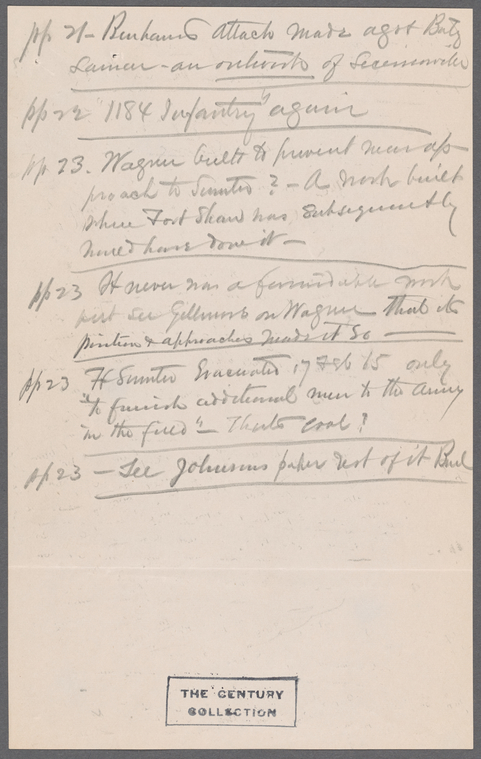 pp 21- Benham's attack made agst Baty
Lamar - an outwork of Secessionville
pp 22 1184 Infantry" again
pp. 23. Wagner built to prevent near ap-
proach to Sumter? - A work built
where Fort Shaw was, subsequently
would have done it -
pp 23 It never was a formidable work
see Gillmore on Wagner that its
position & approaches made it so
pp 23 Ft Sumter Evacuated 17 Feb 65 only
"to furnish additional men to the army
in the field" - Thats cool?
pp 23 - See Johnsons paper rest of it
THE CENTURY
COLLECTION